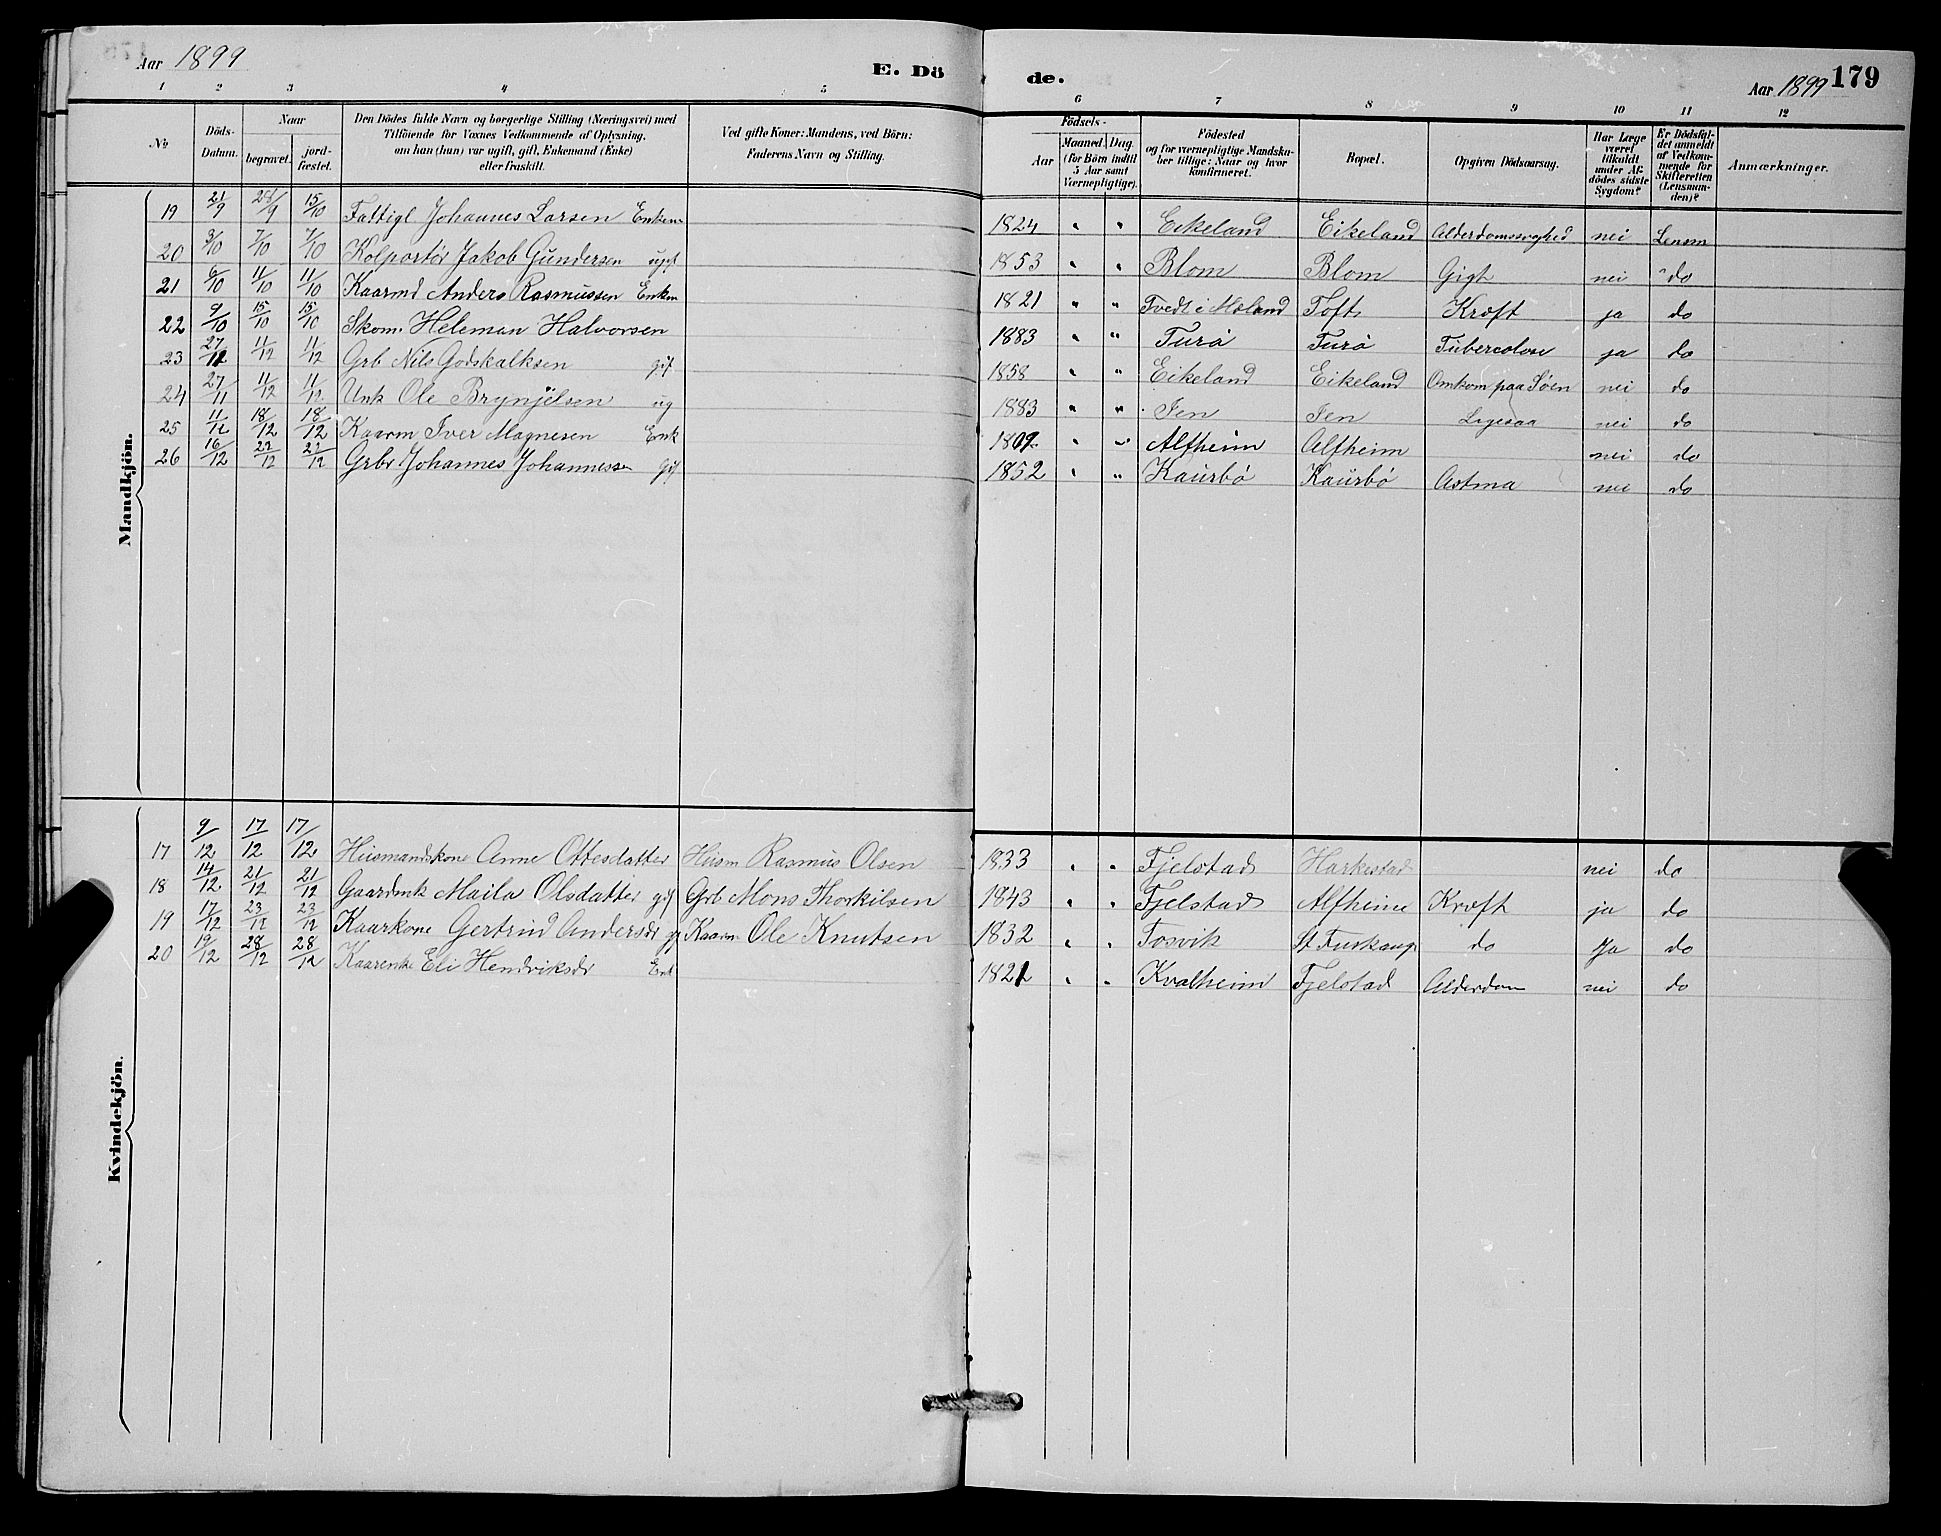 Aar 1899 E. Dö de. Aar 1899 179
1 2 3 4 5 6 7 8 9 10 11 12
No
Döds-Datum.
Naar
begravet.
jord-fæstet.
Den Dödes fulde Navn og borgerlige Stilling (Næringsvei) med
Tilföiende for Voxnes Vedkommende af Oplysning,
om han (hun) var ugift, gift, Enkemand (Enke)
eller fraskilt.
Ved gifte Koner: Mandens, ved Börn:
Faderens Navn og Stilling.
Födsels-
Aar
Maaned. Dag.
(for Börn indtil
5 Aar samt
Værnepligtige).
Födested
og for værnepligtige Mandska-
ber tillige: Naar og hvor
konfirmeret.
Bopæl.
Opgiven Dödsaarsag.
Har Læge
været
tilkaldt
under Af-
dödes sidste
Sygdom?
Er Dödsfal-
det anmeldt
af Vedkom-
mende for
Skifteretten
(Lensman-
den)?
Anmærkninger.
Mandkjön.
19 21/9 28/9 15/10 Fattigl Johannes Larsen Enkem 1824 " " Eikeland Eikeland Alderdomssvaghed nei Lensm
20 3/10 7/10 7/10 Kolportör Jakob Gundersen ugft 1853 " " Blom Blom Gigt nei do
21 6/10 11/10 11/10 Kaarmd Anders Rasmussen Enkem 1821 " " Tvedt i Mæland Toft Kræft ja do
22 9/10 15/10 15/10 Skom. Heleman Halvorsen 1883 " " Turö Turö Tubercolose ja do
23 27/11 11/12 11/12 Grb Nils Godskalksen gif 1858 " " Eikeland Eikeland Omkom paa Söen nei do
24 27/11 11/12 11/12 Unk Ole Brynjelsen ug 1883 " " Jen Jen Ligesaa nei do
25 11/12 18/12 18/12 Kaarm Iver Magnesen Enk " " Alfheim Alfheim nei do
26 16/12 22/12 22/12 Grbr Johannes Johannessen Gif 1852 " " Kaursbö Kaursbö Astma nei do
Kvindekjön.
17 9/12 17/12 17/12 Husmandskone Anne Ottesdatter Husm Rasmus Olsen 1833 " " Fjelstad Harkestad nei do
18 14/12 21/12 21/12 Maila Olsdatter gif Grb Mons Thorkilsen 1843 " " Fjelstad Alfheim Kræft ja do
19 17/12 23/12 23/12 Kaarkone Gertrud Andersdr gf Kaarm Ole Knutsen 1832 " " Tosvik do Ja do
20 19/12 28/12 28/12 Kaarenke Eli Hendriksdr Enk 1821 " " Kvalheim Fjelstad Alderdom nei do